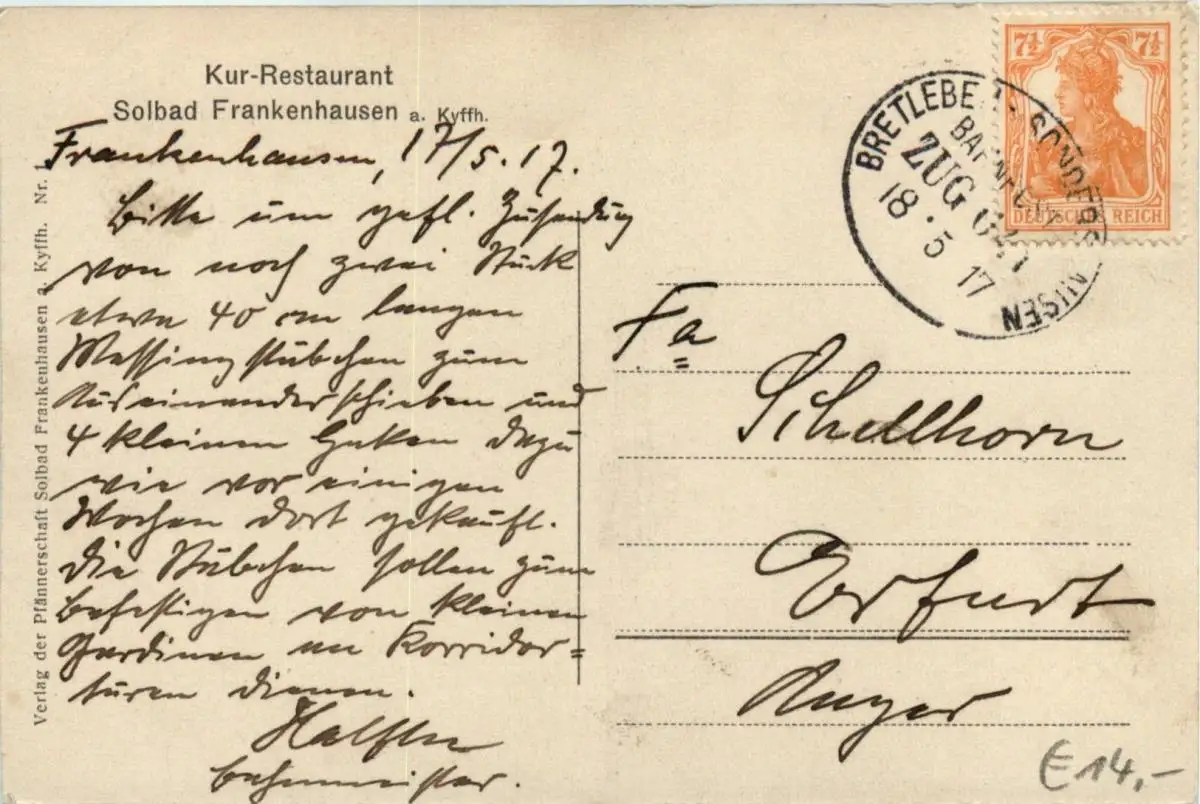 Kur-Restaurant
Solbad Frankenhausen a. Kyffh.
Frankenhausen, 17/5.17.
Bitte um gefl. Zusendung
von noch zwei Stück
etwa 40 cm langen
Messingstäbchen zum
Auseinanderschieben und
4 kleinen Haken dazu
wie vor einigen
Wochen dort gekauft.
Die Stäbchen sollen zum
befestigen von kleinen
Gardinen an Korridor=
türen dienen.
Bahnmeister.
Verlag der Pfännerschaft Solbad Frankenhausen a. Kyffh. Nr. 1
7½ 7½
DEUTSCHES REICH
BRETLEBEN SONDERSHAUSEN
BAHNPOST
ZUG
18.5 17
Fa
Schellhorn
Erfurt
Anger
€ 14,-